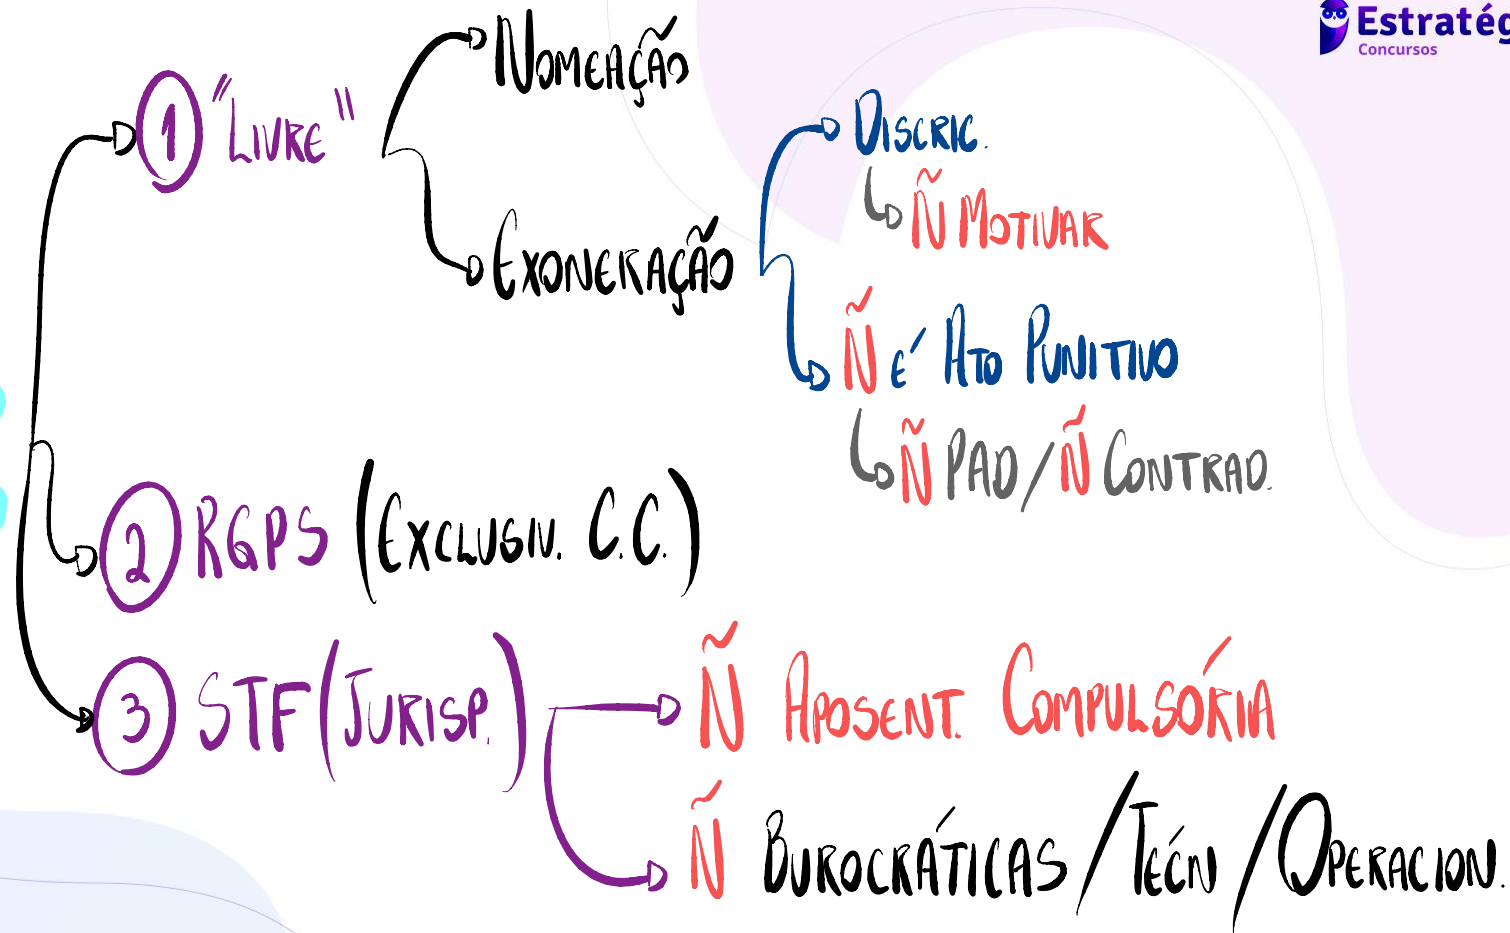 Estratég
Concursos
1 "LIVRE"
NOMEAÇÃO
EXONERAÇÃO
DISCRIC.
Ñ MOTIVAR
Ñ É ATO PUNITIVO
Ñ PAD/Ñ CONTRAD.
2 RGPS (EXCLUSIV. C.C.)
3 STF (JURISP.)
Ñ APOSENT. COMPULSÓRIA
Ñ BUROCRÁTICAS/TÉCN/OPERACION.